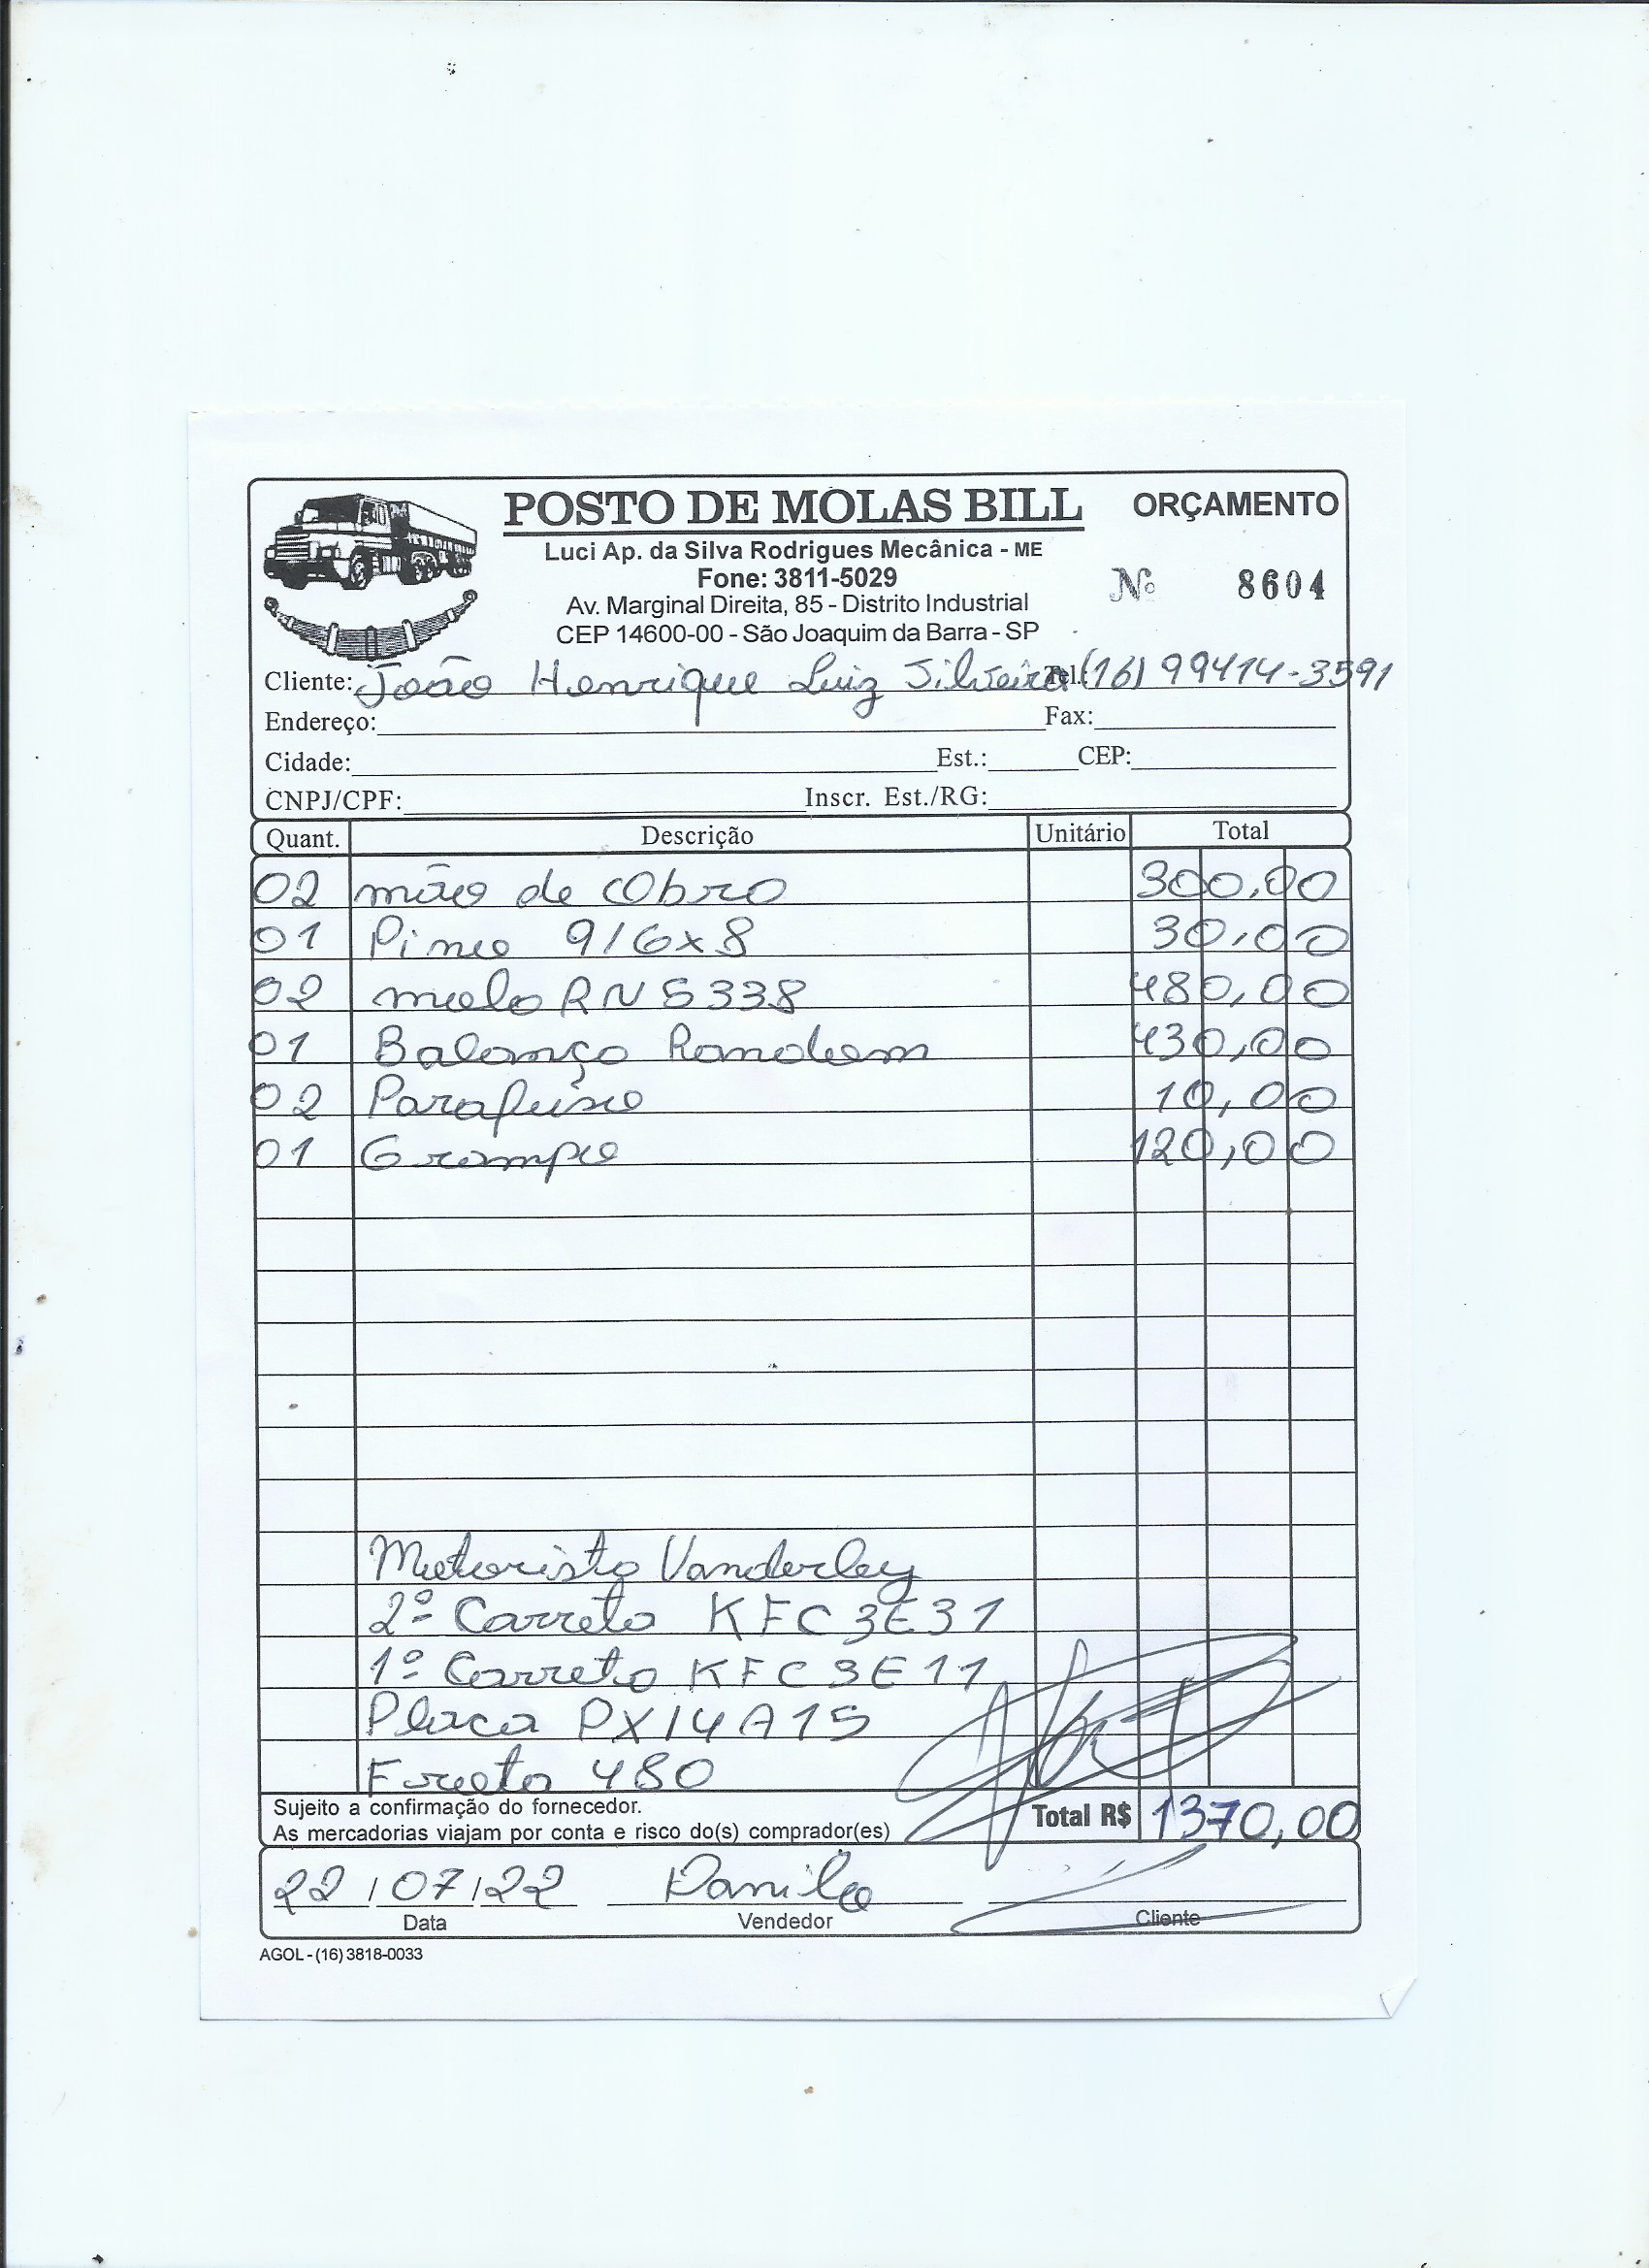 POSTO DE MOLAS BILL
ORÇAMENTO
Luci Ap. da Silva Rodrigues Mecânica - ME
Fone: 3811-5029
Nº 8604
Av. Marginal Direita, 85 - Distrito Industrial
CEP 14600-00 - São Joaquim da Barra - SP
Cliente: João Henrique Luiz Silveira Tel.: (16) 99414-3591
Endereço: Fax:
Cidade: Est.: CEP:
CNPJ/CPF: Inscr. Est./RG:
Quant. Descrição Unitário Total
02 mão de Obra 300,00
01 Pino 9/16x8 30,00
02 mola RN 5338 480,00
01 Balança Random 430,00
02 Parafuso 10,00
01 Grampo 120,00
Motorista Vanderley
2º Carreta KFC 3E31
1º Carreta KFC 3E11
Placa PXI4A15
Frota 480
Sujeito a confirmação do fornecedor.
As mercadorias viajam por conta e risco do(s) comprador(es)
Total R$ 1370,00
22/07/22 Danilo
Data Vendedor Cliente
AGOL - (16) 3818-0033